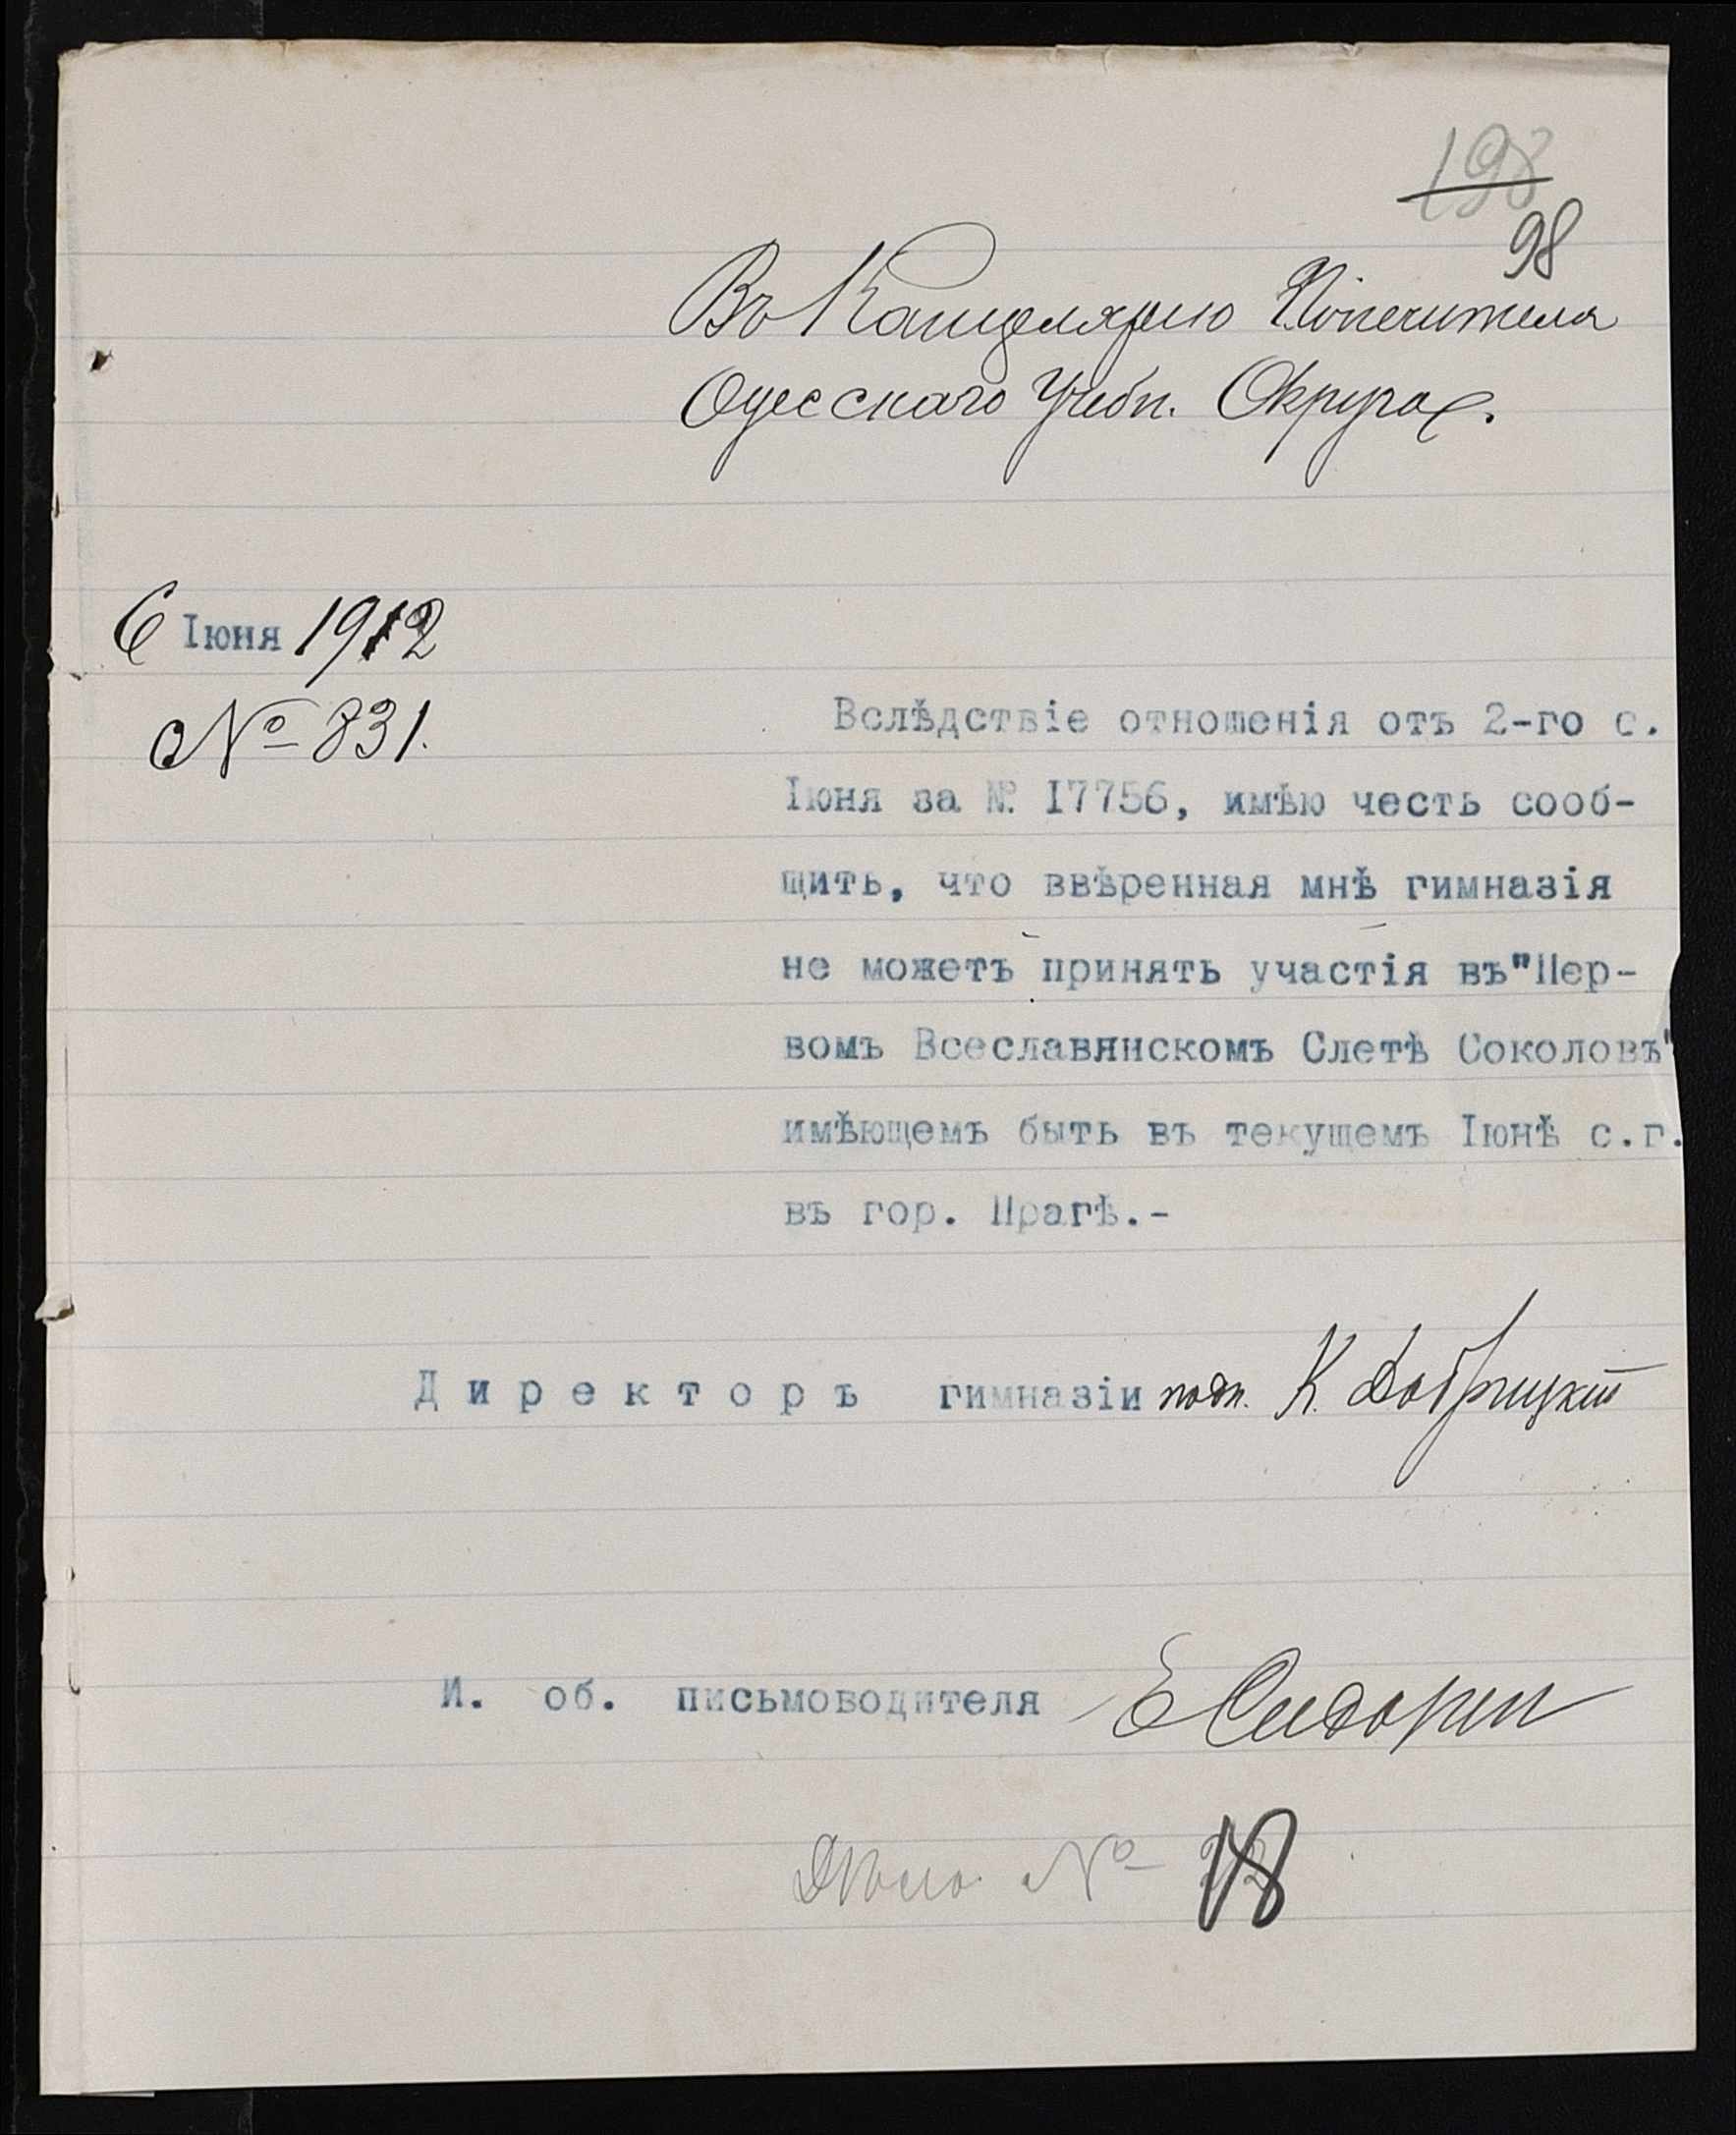 198
98
Въ Канцелярію Попечителя
Одесскаго Учебн. Округа.
6 Іюня 1912
№ 831.
Вслѣдствіе отношенія отъ 2-го с.
Іюня за № 17756, имѣю честь сооб-
щить, что ввѣренная мнѣ гимназія
не можетъ принять участія въ "Пер-
вомъ Всеславянскомъ Слетѣ Соколовъ"
имѣющемъ быть въ текущемъ Іюнѣ с.г.
въ гор. Прагѣ.-
Директоръ гимназіи подп. К. Добрицкій
И. об. письмоводителя Е Сидорин
Дѣло № 18